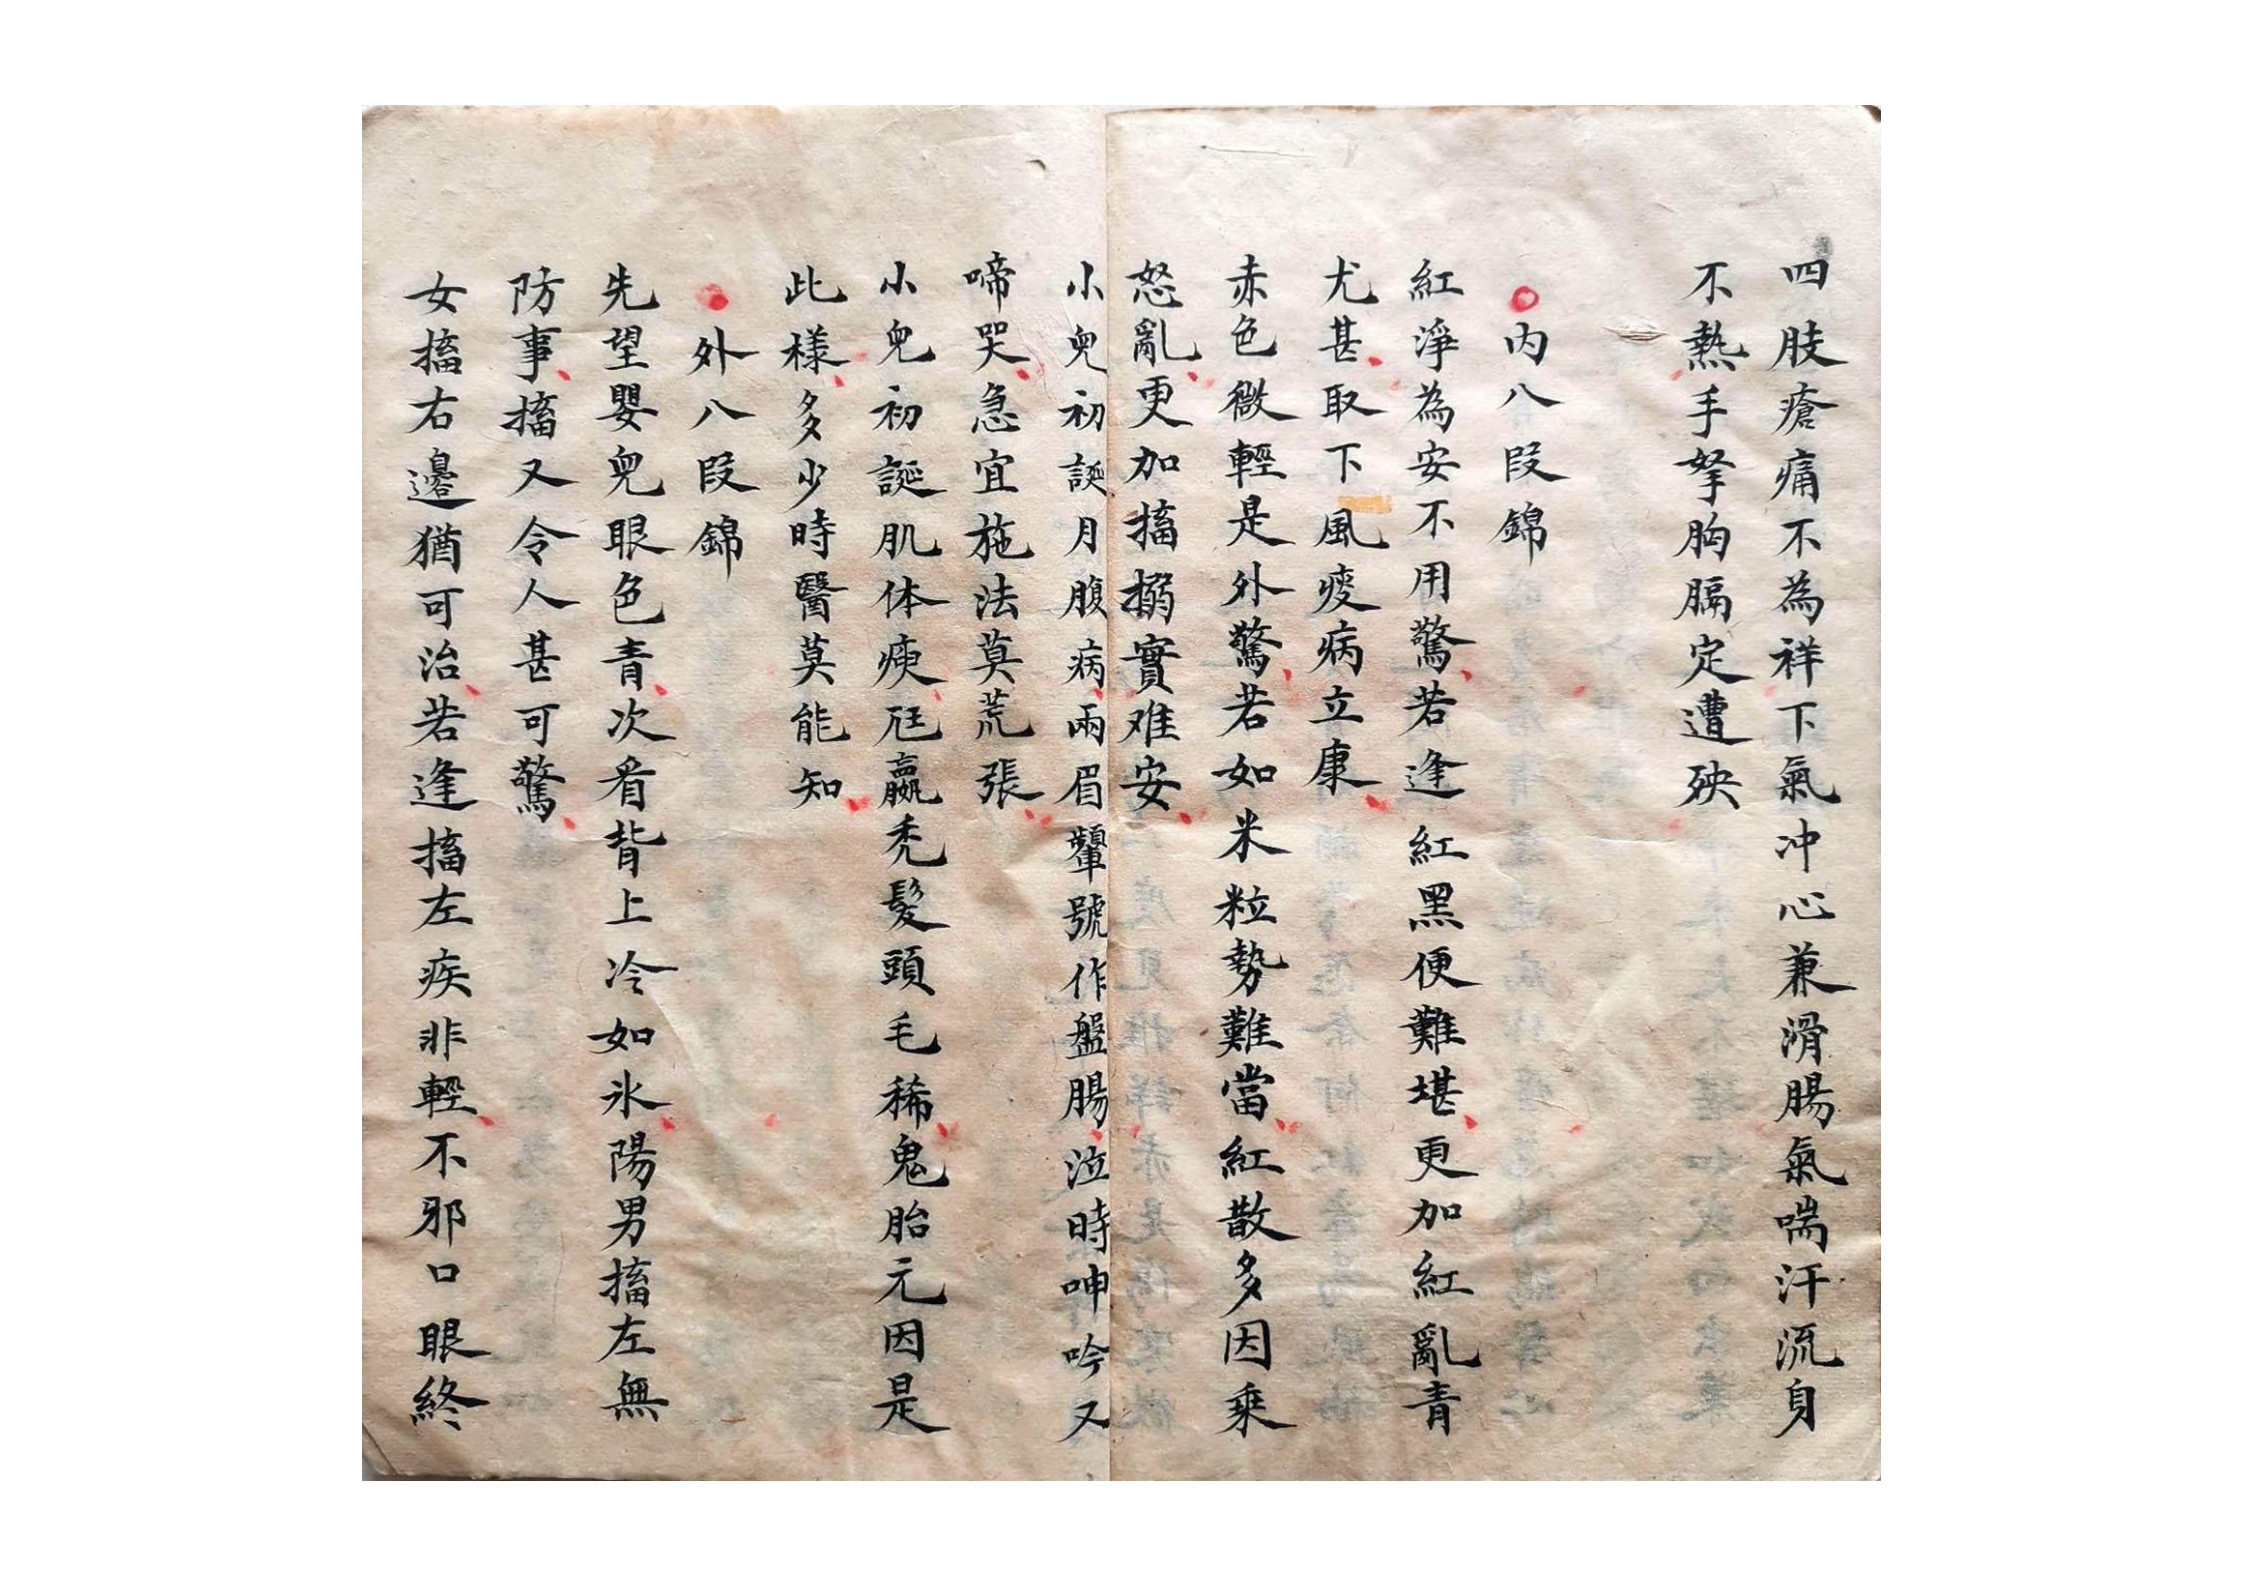 四肢瘡痛不為祥下氣冲心兼滑腸氣喘汗流身
不熱手拏胸膈定遭殃
內八段錦
紅淨為安不用驚若逢紅黑便難堪更加紅亂青
尤甚取下風痰病立康
赤色微輕是外驚若如米粒勢難當紅散多因乘
怒亂更加搐搦實难安
小兒初誕月腹病兩眉顰號作盤腸泣時呻吟又
啼哭急宜施法莫荒張
小兒初誕肌体瘐尪羸禿髮頭毛稀鬼胎元因是
此樣多少時醫莫能知
外八段錦
先望嬰兒眼色青次看背上冷如氷陽男搐左無
防事搐又令人甚可驚
女搐右邊猶可治若逢搐左疾非輕不邪口眼終